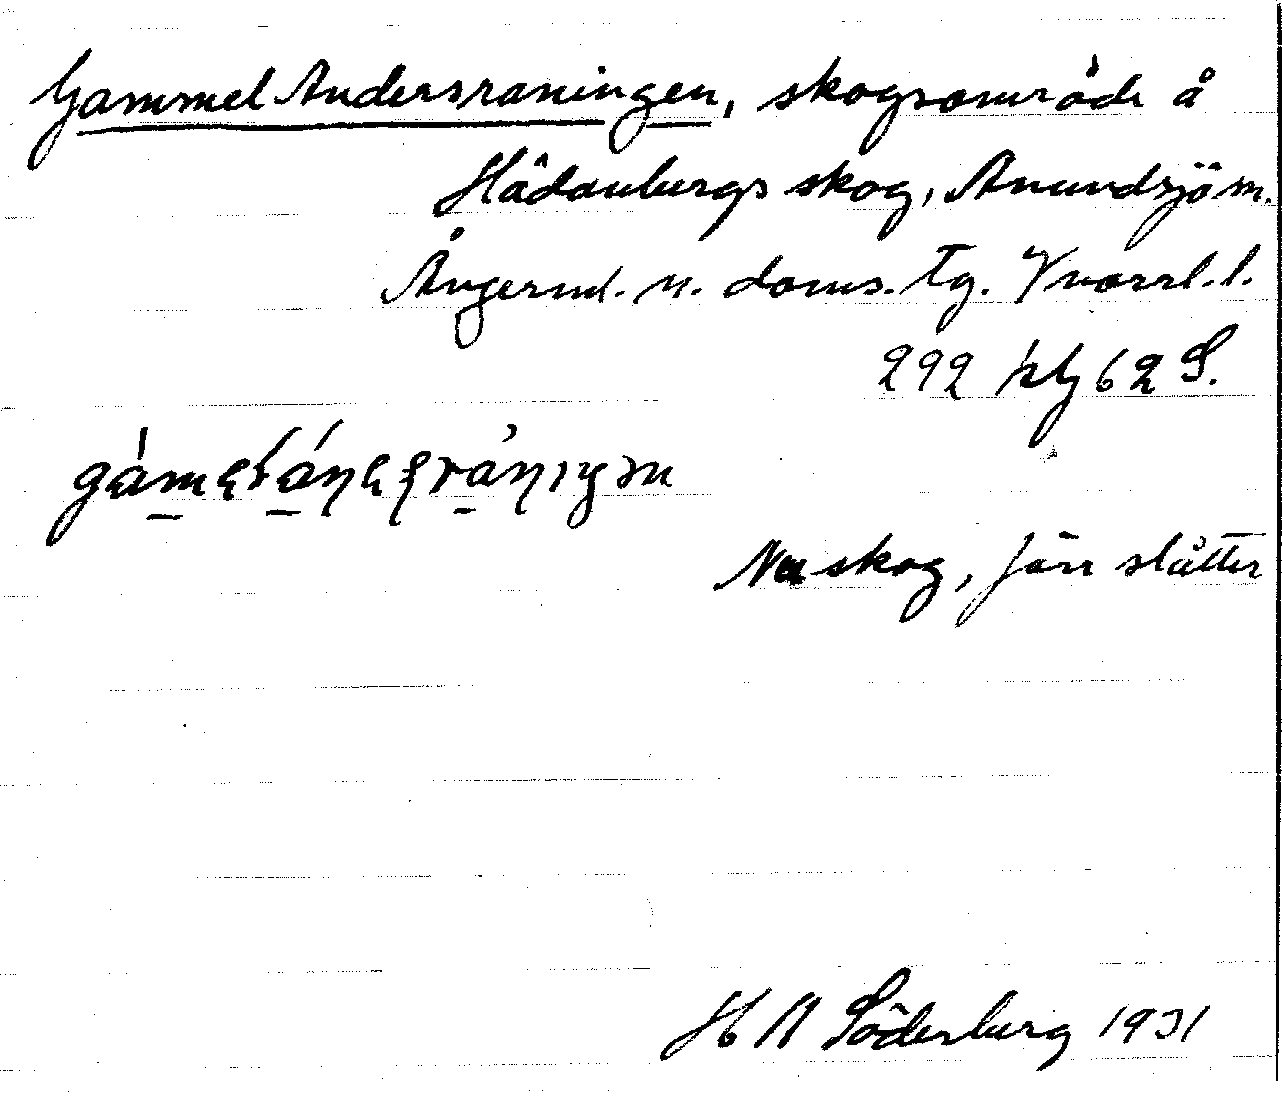 Gammel Andersraningen, skogsområde å
Hädanbergs skog, Anundsjö sn.
Ångerml. n. doms. tg. Västerl. l.
292 62 S.
Nu skog, förr slåtter
H A Söderberg 1931